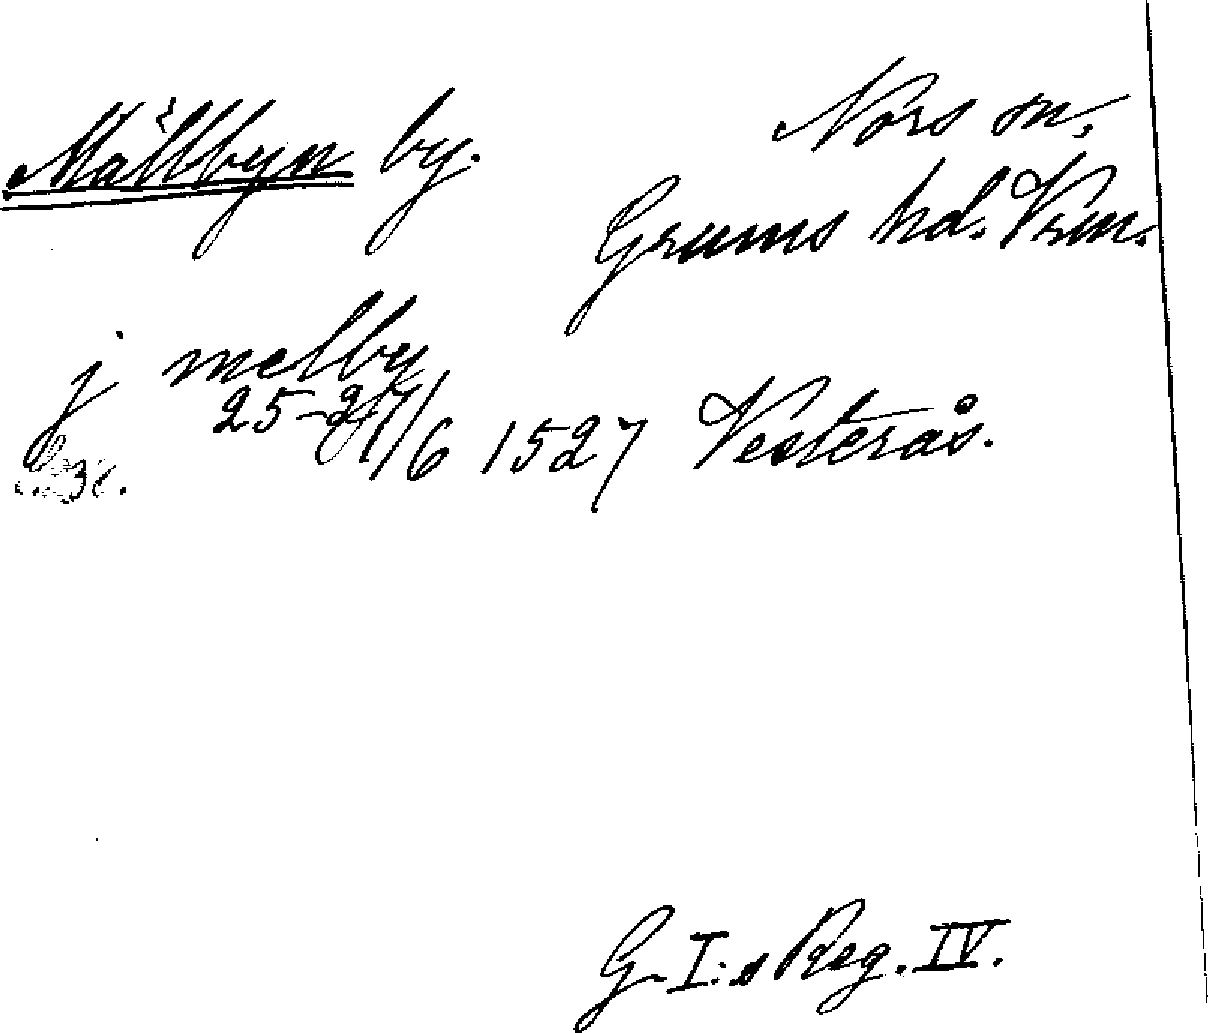 Mällbyn by.
Nors sn.
Grums hd. Vrm.
j melby
25-27/6 1527 Vesterås.
G. I:s Reg. IV.